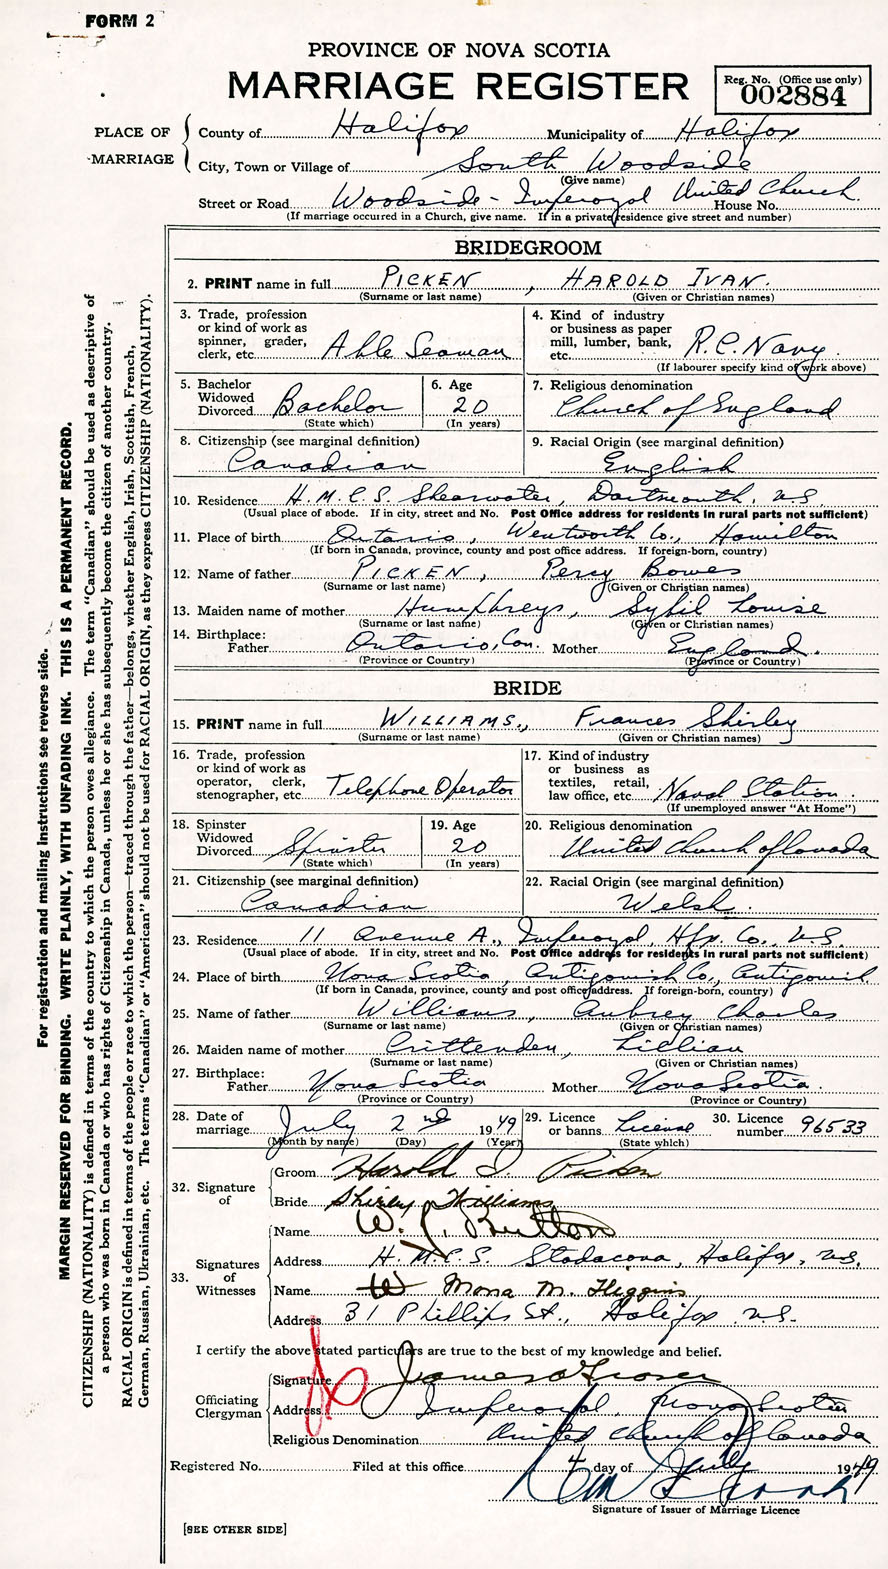 FORM 2
PROVINCE OF NOVA SCOTIA
MARRIAGE REGISTER
Reg. No. (Office use only)
002884
PLACE OF MARRIAGE
County of Halifax Municipality of Halifax
City, Town or Village of South Woodside
(Give name)
Street or Road Woodside - Imperoyal United Church House No.
(If marriage occurred in a Church, give name. If in a private residence give street and number)
BRIDEGROOM
2. PRINT name in full PICKEN, HAROLD IVAN.
(Surname or last name) (Given or Christian names)
3. Trade, profession or kind of work as spinner, grader, clerk, etc. Able Seaman
4. Kind of industry or business as paper mill, lumber, bank, etc. R.C. Navy.
(If labourer specify kind of work above)
5. Bachelor Widowed Divorced Bachelor
(State which)
6. Age 20
(In years)
7. Religious denomination Church of England
8. Citizenship (see marginal definition) Canadian
9. Racial Origin (see marginal definition) English
10. Residence H.M.C.S. Shearwater, Dartmouth, N.S
(Usual place of abode. If in city, street and No. Post Office address for residents in rural parts not sufficient)
11. Place of birth Ontario, Wentworth Co., Hamilton
(If born in Canada, province, county and post office address. If foreign-born, country)
12. Name of father PICKEN, Percy Bowes
(Surname or last name) (Given or Christian names)
13. Maiden name of mother Humphreys, Sybil Louise
(Surname or last name) (Given or Christian names)
14. Birthplace: Father Ontario, Can. Mother England.
(Province or Country) (Province or Country)
BRIDE
15. PRINT name in full WILLIAMS, Frances Shirley
(Surname or last name) (Given or Christian names)
16. Trade, profession or kind of work as operator, clerk, stenographer, etc. Telephone Operator
17. Kind of industry or business as textiles, retail, law office, etc. Naval Station.
(If unemployed answer "At Home")
18. Spinster Widowed Divorced Spinster
(State which)
19. Age 20
(In years)
20. Religious denomination United Church of Canada
21. Citizenship (see marginal definition) Canadian
22. Racial Origin (see marginal definition) Welsh.
23. Residence 11 Avenue A., Imperoyal, Hfx. Co., N.S.
(Usual place of abode. If in city, street and No. Post Office address for residents in rural parts not sufficient)
24. Place of birth Nova Scotia, Antigonish Co., Antigonish
(If born in Canada, province, county and post office address. If foreign-born, country)
25. Name of father Williams, Aubrey Charles
(Surname or last name) (Given or Christian names)
26. Maiden name of mother Crittenden, Lillian
(Surname or last name) (Given or Christian names)
27. Birthplace: Father Nova Scotia Mother Nova Scotia.
(Province or Country) (Province or Country)
28. Date of marriage July 2nd 1949
(Month by name) (Day) (Year)
29. Licence or banns License
(State which)
30. Licence number 96533
32. Signature of
Groom Harold I. Picken
Bride Shirley Williams
33. Signatures of Witnesses
Name W. J. Rutton
Address H.M.C.S. Stadacona, Halifax, N.S.
Name W Mona M. Higgins
Address 31 Phillips St., Halifax N.S.
I certify the above stated particulars are true to the best of my knowledge and belief.
Officiating Clergyman
Signature James
Address Imperoyal, Nova Scotia
Religious Denomination United Church of Canada
Registered No. Filed at this office 4 day of July 1949
Signature of Issuer of Marriage Licence
[SEE OTHER SIDE]
For registration and mailing instructions see reverse side.
MARGIN RESERVED FOR BINDING. WRITE PLAINLY, WITH UNFADING INK. THIS IS A PERMANENT RECORD.
CITIZENSHIP (NATIONALITY) is defined in terms of the country to which the person owes allegiance. The term "Canadian" should be used as descriptive of
a person who was born in Canada or who has rights of Citizenship in Canada, unless he or she has subsequently become the citizen of another country.
RACIAL ORIGIN is defined in terms of the people or race to which the person—traced through the father—belongs, whether English, Irish, Scottish, French,
German, Russian, Ukrainian, etc. The terms "Canadian" or "American" should not be used for RACIAL ORIGIN, as they express CITIZENSHIP (NATIONALITY).